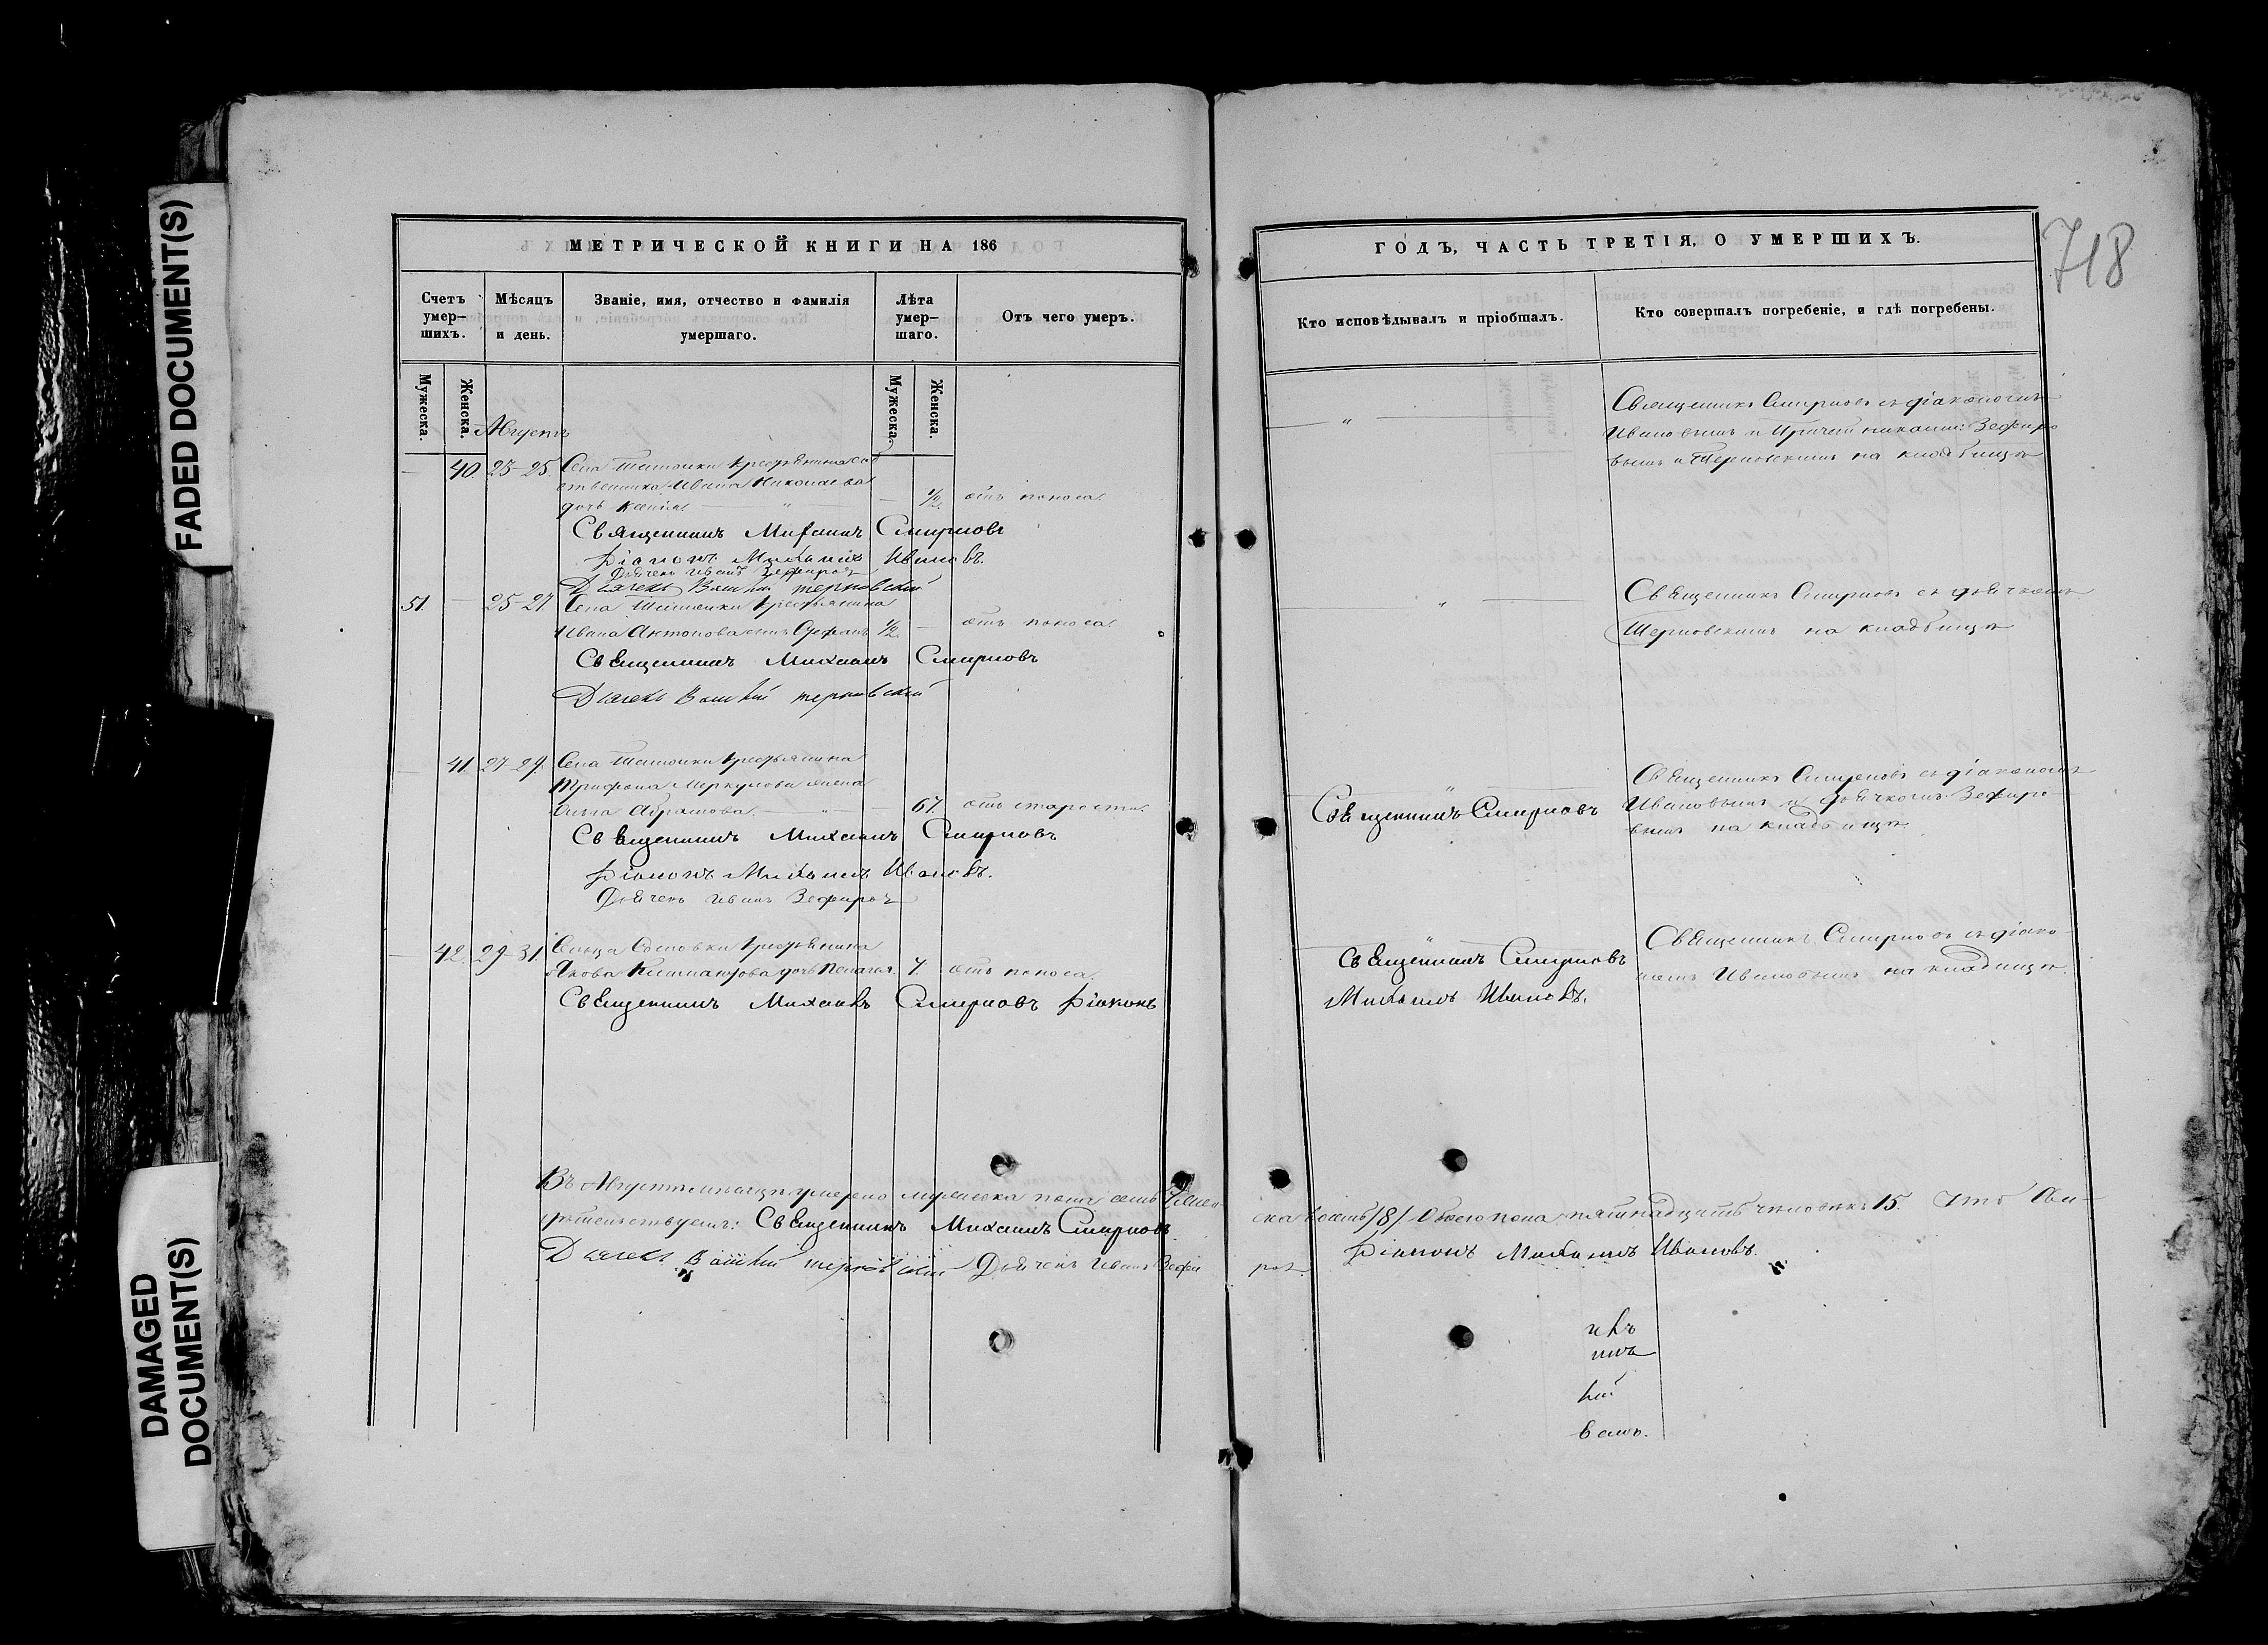 FADED DOCUMENT(S)
DAMAGED DOCUMENT(S)
МЕТРИЧЕСКОЙ КНИГИ НА 186
Счетъ умер-
шихъ.
Мѣсяцъ
и день.
Званіе, имя, отчество и фамилія
умершаго.
Лѣта
умер-
шаго.
Отъ чего умеръ.
Мужеска.
Женска.
Мужеска.
Женска.
Августъ
40. 23-25. Села крестьянина соб
ственника Ивана Николаева
дочь Ксенія — " — 1/2. отъ поноса.
Священникъ Михаилъ Смирновъ
Діаконъ Михаилъ Ивановъ.
Дьячекъ Иванъ Зефировъ
Дьячекъ Терновскій
51. — 25-27. Села крестьянина
Ивана Антонова сынъ 1/2. — отъ поноса.
Священникъ Михаилъ Смирновъ
Дьячекъ Терновскій
41. 27-29. Села крестьянина
Трифона Меркулова жена
Абрамова. — " — 67. отъ старости.
Священникъ Михаилъ Смирновъ
Діаконъ Михаилъ Ивановъ.
Дьячекъ Иванъ Зефировъ
42. 29-31. Сосновки крестьянина
Якова дочь Пелагея. 7. отъ поноса.
Священникъ Михаилъ Смирновъ Діаконъ
Въ Августѣ мѣсяцѣ умерло мужеска пола семь Женс
свидѣтельствуемъ: Священникъ Михаилъ Смирновъ
Дьячекъ Терновскій Дьячекъ Иванъ Зефи
ГОДЪ, ЧАСТЬ ТРЕТІЯ, О УМЕРШИХЪ.
718
Кто исповѣдывалъ и пріобщалъ.
Кто совершалъ погребеніе, и гдѣ погребены.
Священникъ Смирновъ съ діакономъ
Ивановымъ и Причетниками: Зефиро
вымъ и Терновскимъ на кладбищѣ
Священникъ Смирновъ съ дьячкомъ
Терновскимъ на кладбищѣ
Священникъ Смирновъ
Священникъ Смирновъ съ діакономъ
Ивановымъ и дьячкомъ Зефиро
вымъ на кладбищѣ.
Священникъ Смирновъ
Михаилъ Ивановъ.
Священникъ Смирновъ съ діако-
номъ Ивановымъ на кладбищѣ.
ска восемь /8/ Обоего пола пятнадцать человѣкъ 15. Что
Діаконъ Михаилъ Ивановъ.
ровъ.